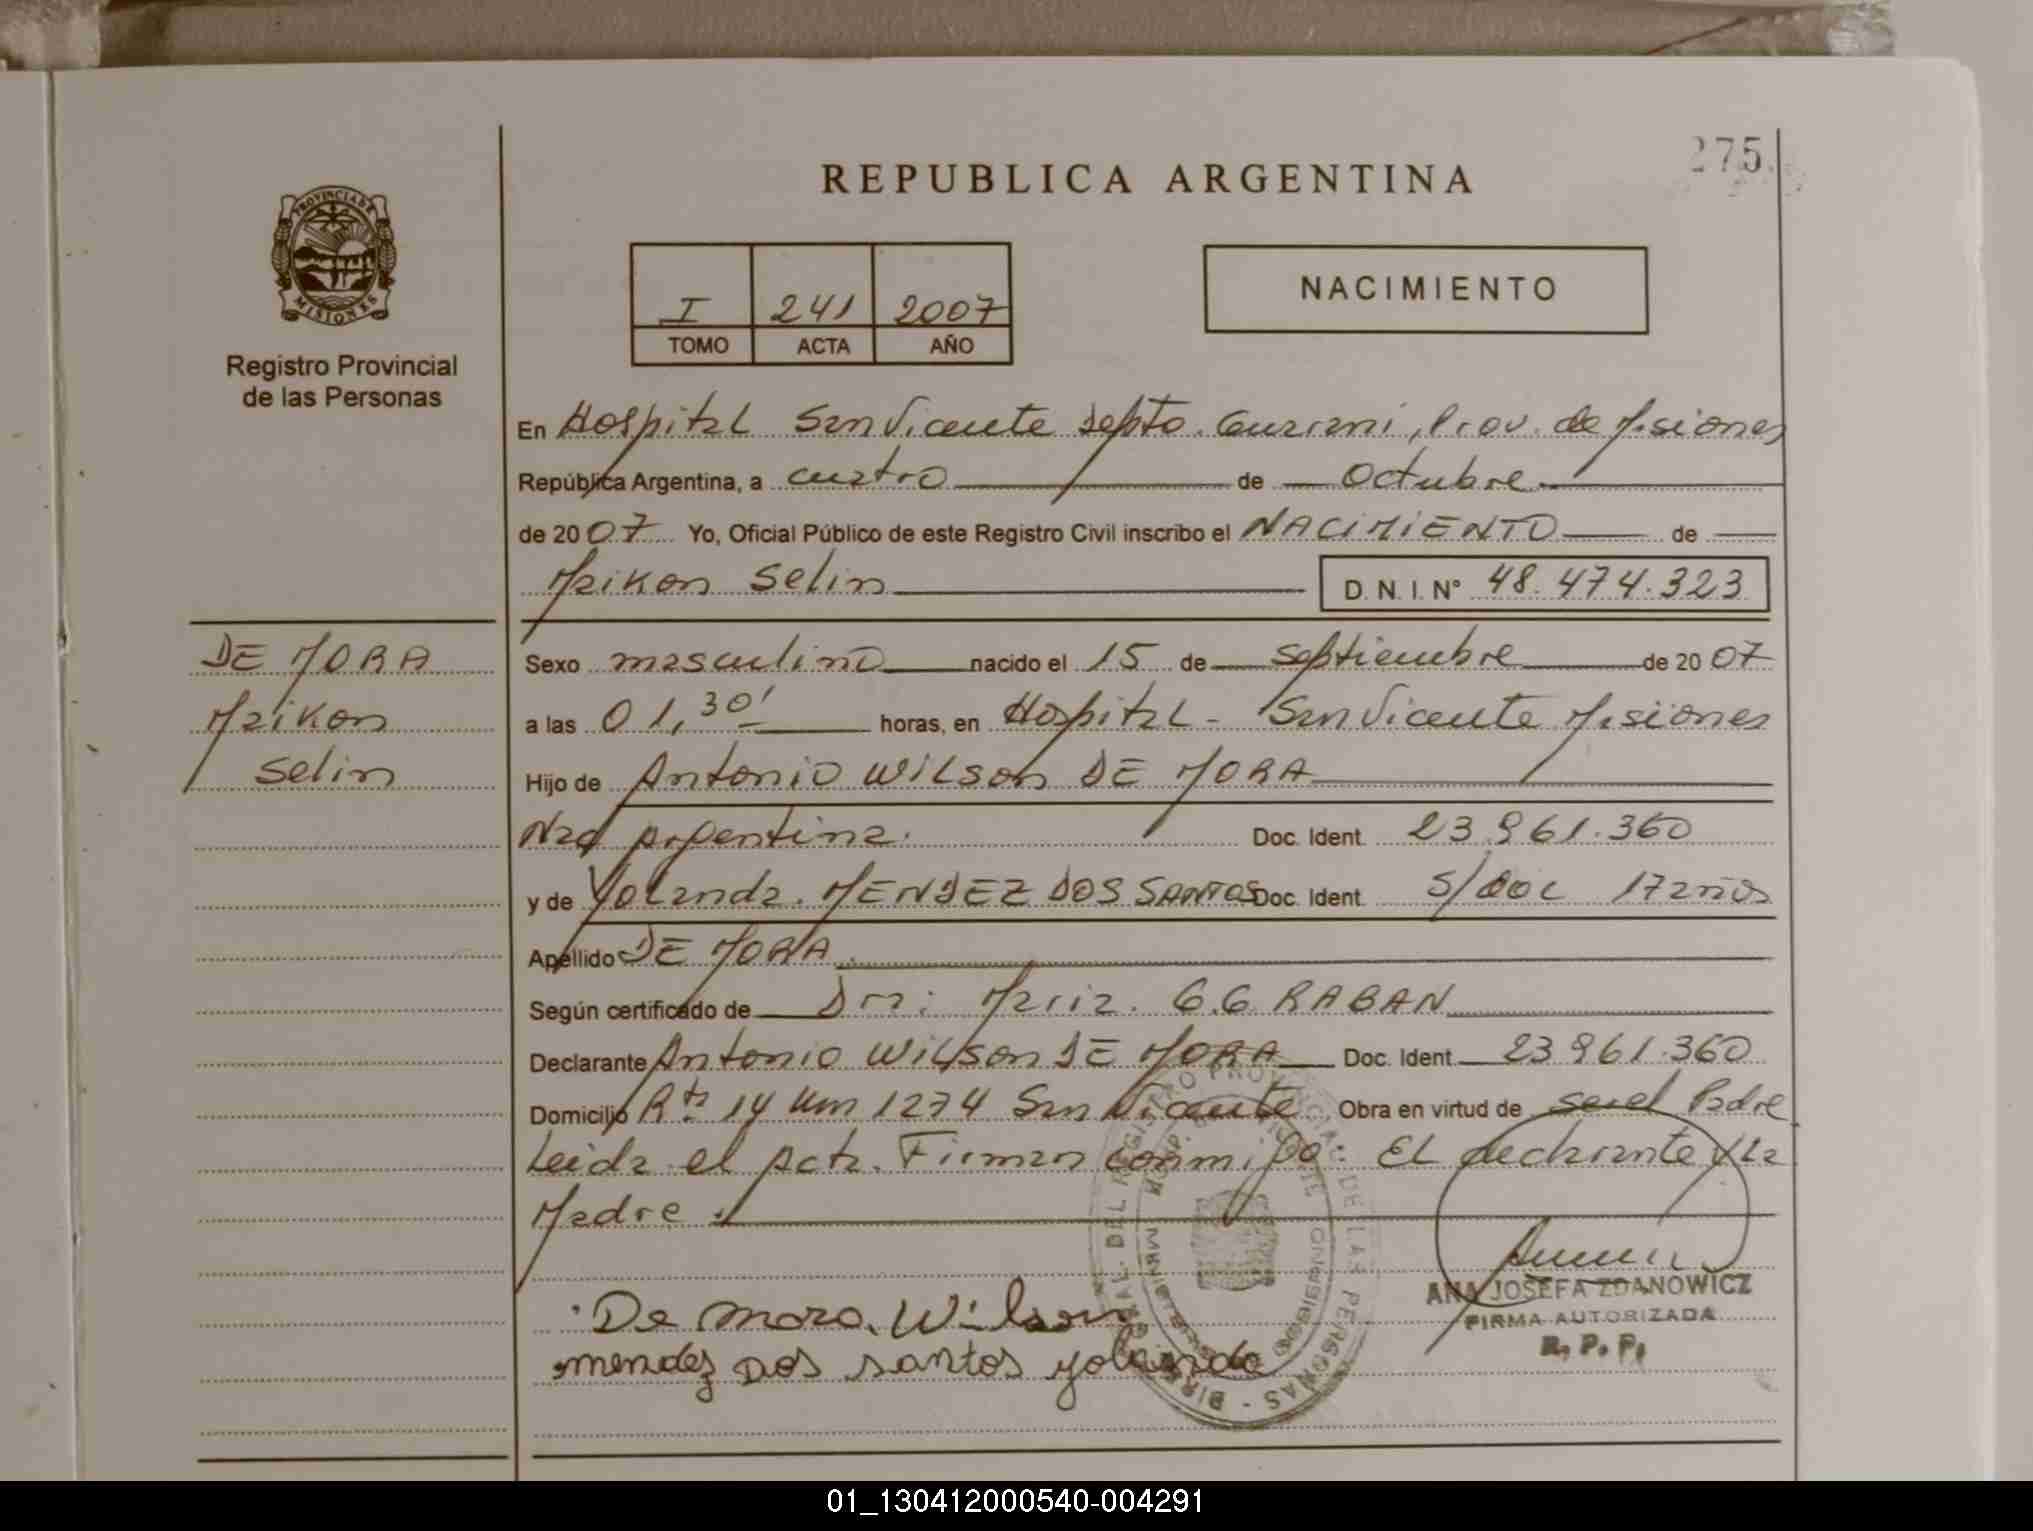 275
REPUBLICA ARGENTINA
PROVINCIA DE
MISIONES
Registro Provincial
de las Personas
I 241 2007
TOMO ACTA AÑO
NACIMIENTO
En Hospital San Vicente Depto. Guarani, Prov. de Misiones
República Argentina, a cuatro de Octubre
de 2007 Yo, Oficial Público de este Registro Civil inscribo el NACIMIENTO de
Maikon Selin D.N.I. N° 48.474.323
DE MORA
Maikon
Selin
Sexo masculino nacido el 15 de septiembre de 2007
a las 01,30' horas, en Hospital - San Vicente Misiones
Hijo de Antonio Wilson DE MORA
Nac Argentina. Doc. Ident. 23.961.360
y de Yolanda. MENDEZ DOS SANTOS Doc. Ident. S/DOC 17 años
Apellido DE MORA.
Según certificado de Dra: Maria. G.G RABAN
Declarante Antonio Wilson DE MORA Doc. Ident. 23961.360
Domicilio Rta 14 Km 1274 San Vicente Obra en virtud de ser el Padre
Leida el Acta. Firman conmigo: EL declarante y La
Madre.
ANA JOSEFA ZDANOWICZ
FIRMA AUTORIZADA
R. P. P.
De mora Wilson
mendez Dos santos yolanda
01_130412000540-004291